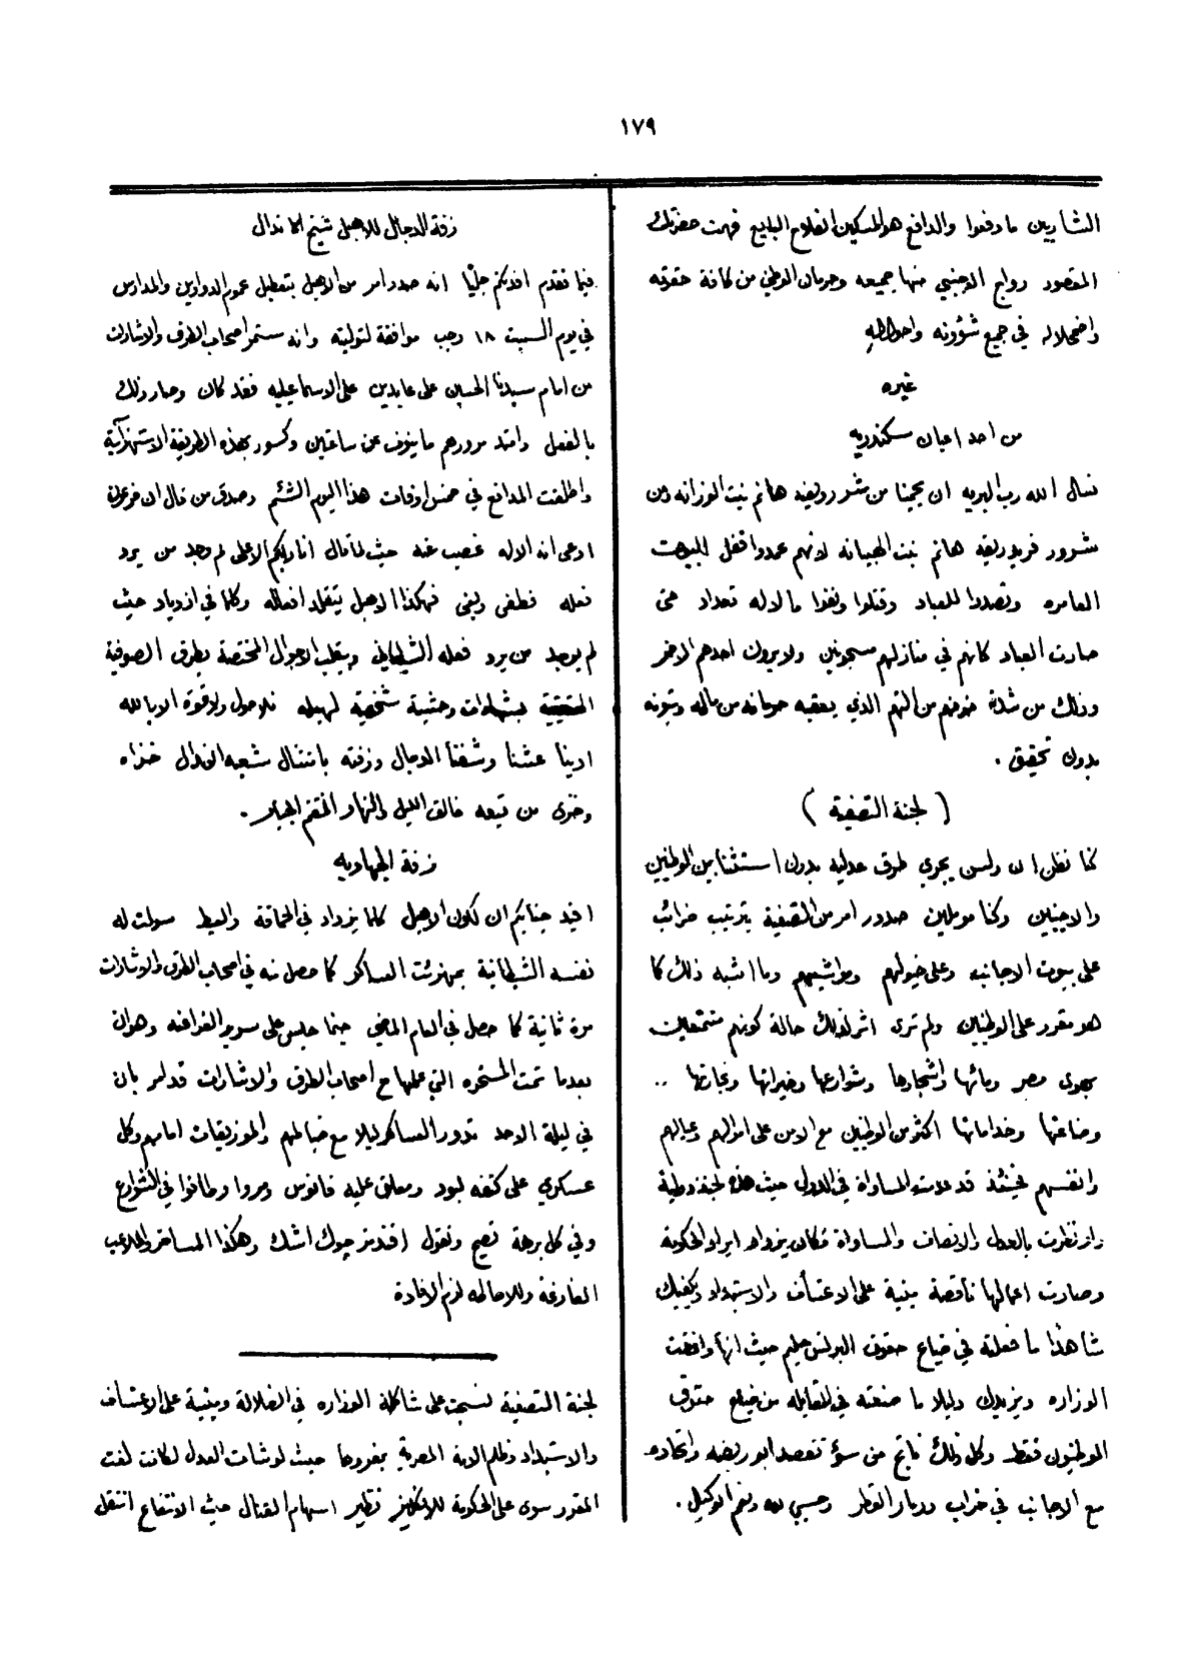 ١٧٩
الشاريين ما دفعوا والدافع هو المسكين الفلاح البايع فهمت حضرتك
المقصود رواج الاجنبي منها جميعه وحرمان الوطني من كافة حقوقه
واضمحلاله في جميع شؤونه واحواله
غيره
من احد اعيان سكندريه
نسال الله رب البريه ان يحمينا من شر رويضه هانم بنت الوزانه ومن
شرور فريد ريقه هانم بنت الجبانه لانهم عمدوا قفل البيوت
العامره وتصددا للعباد وقتلوا ونفوا ما لاله تعداد حتى
صارت العباد كانهم في منازلهم مسجونين ولا يرون احدهم الاخر
وذلك من شدة خوفهم من التهم الذي يعقبه حرمانه من ماله وبيوته
بدون تحقيق .
( لجنة التصفية )
كنا نظن ان ولسن يجري طرق عدليه بدون استثنا بين الوطنيين
والاجنبيين وكنا موملين صدور امر من التصفية بترتيب ضرائب
على بيوت الاجانب وعلى خيولهم ومواشيهم وما اشبه ذلك كما
هو مقرر على الوطنيين ولم ترى اثر لذلك حالة كونهم متمتعين
بهوى مصر ومائها واشجارها وشوارعها وخيراتها وتجارتها ..
وصناعتها وخداماتها اكثر من الوطنيين مع الامن على اموالهم وعيالهم
وانفسهم فحينئذ قد عدمت المساواة في الدول حيث هذه لجنة دولية
واذ نظرت بالعدل والانصاف والمساواة فكان يزداد ايراد الحكومة
وصارت اعمالها ناقصة مبنية على الاعتساف والاستبداد ويكفيك
شاهدا ما فعلته في ضياع حقوق البرنس حليم حيث انها وافقت
الوزاره ويزيدك دليلا ما صنعته في المقابله من ضياع حقوق
الوطنيون فقط وكل ذلك ناتج من سؤ تقصد ابو ريضه واتحاده
مع الاجانب في خراب وديار القطر وحسبي الله ونعم الوكيل .
زفة الدجال للاهبل شيخ الاندال
فيما تقدم افدتكم جليًا انه صدر امر من الاهبل بتعطيل عموم الدواوين والمدارس
في يوم السبت ١٨ رجب موافقة لتوليته وانه ستمر اصحاب الطرق والاشارات
من امام سيدنا الحسين على عابدين على الاسماعيليه فقد كان وصار ذلك
بالفعل وامتد مرورهم ما ينوف عن ساعتين وكسور بهذه الطريقة الاستهزآئية
واطلقت المدافع في خمس اوقات هذا اليوم الشئم وصدق من قال ان فرعون
ادعى انه الاله غصب عنه حيث لما قال انا ربكم الاعلى لم وجد من يرد
فعله فطغى وبغى فهكذا الاهبل يتقلد افعاله وكلما في ازدياد حيث
لم يوجد من يرد فعله الشيطاني ويقلب الاحوال المختصة بطرق الصوفية
الحقيقية وحشية شخصية لهبله فلا حول ولا قوة الا بالله
ادينا عشنا وشفنا الدجال وزفته بامتثال شعبه الانذال خزاه
وخزى من تبعه خالق الليل والنهار المنتقم الجبار .
زفة الجهاديه
افيد جنابكم ان لكون الاهبل كلما يزداد في الحماقة والعبط سولت له
نفسه الشيطانية بمهزئت العساكر كما حصل منه في اصحاب الطرق والاشارات
مرة ثانية كما حصل في العام الماضي حينما جلس على سرير الفراعنه وهو ان
بعدما تمت المسخره التي عملها مع اصحاب الطرق والاشارات قد امر بان
في ليلة الاحد تدور العساكر ليلا مع ضباطهم والموزيقات امامهم وكل
عسكري على كتفه لبود ومعلق عليه فانوس ومروا وطافوا في الشوارع
وفي كل برهة تصيح وتقول افندمز چوك اشك وهكذا المساخر والملاعيب
الفارغة وللاحاطه لزم الافادة
لجنة التصفية نسجت على شاكلة الوزاره في الضلالة ومبنية على الاعتساف
والاستبداد وظلم الامة المصرية بمفردها حيث لو شات العدل لكانت لغت
المقرر سوى على الحكومة للانكليز نظير اسهام القنال حيث الانتفاع انتقل